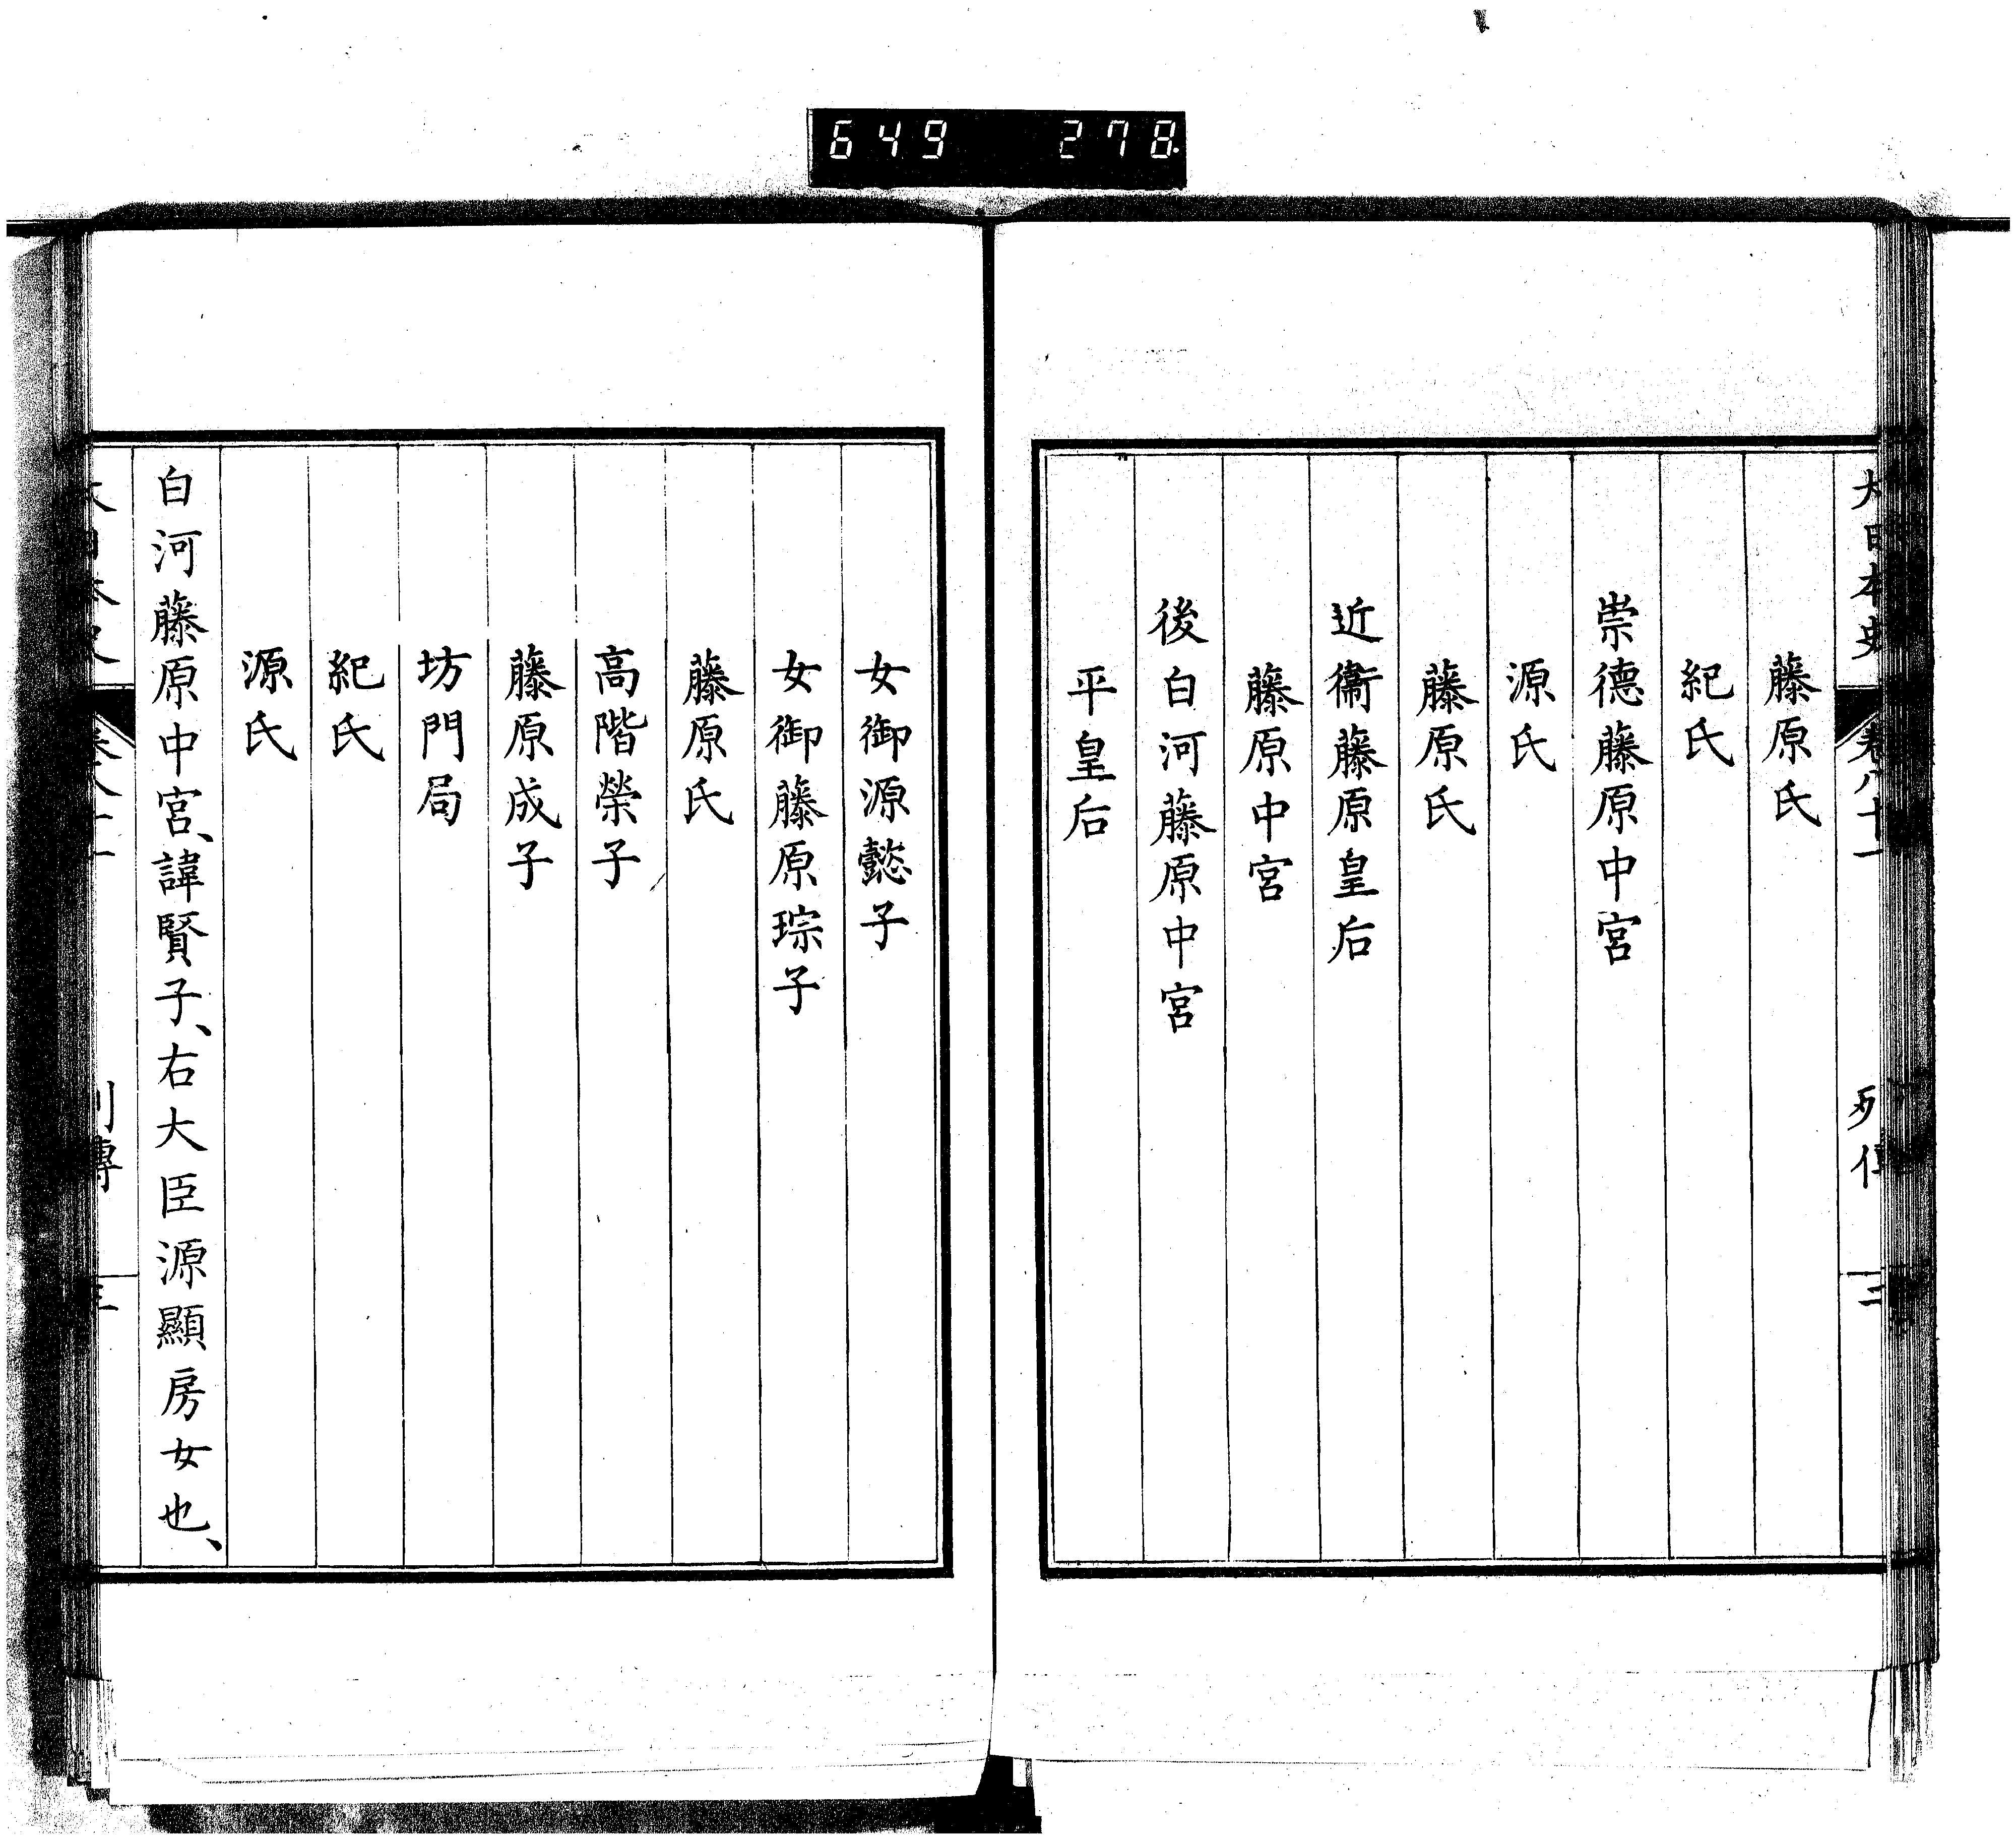 649 278
大日本史 卷八十一 列傳 二
藤原氏
紀氏
崇德藤原中宮
源氏
藤原氏
近衞藤原皇后
藤原中宮
後白河藤原中宮
平皇后
女御源懿子
女御藤原琮子
藤原氏
高階榮子
藤原成子
坊門局
紀氏
源氏
白河藤原中宮、諱賢子、右大臣源顯房女也、
大日本史 卷八十一 列傳 三